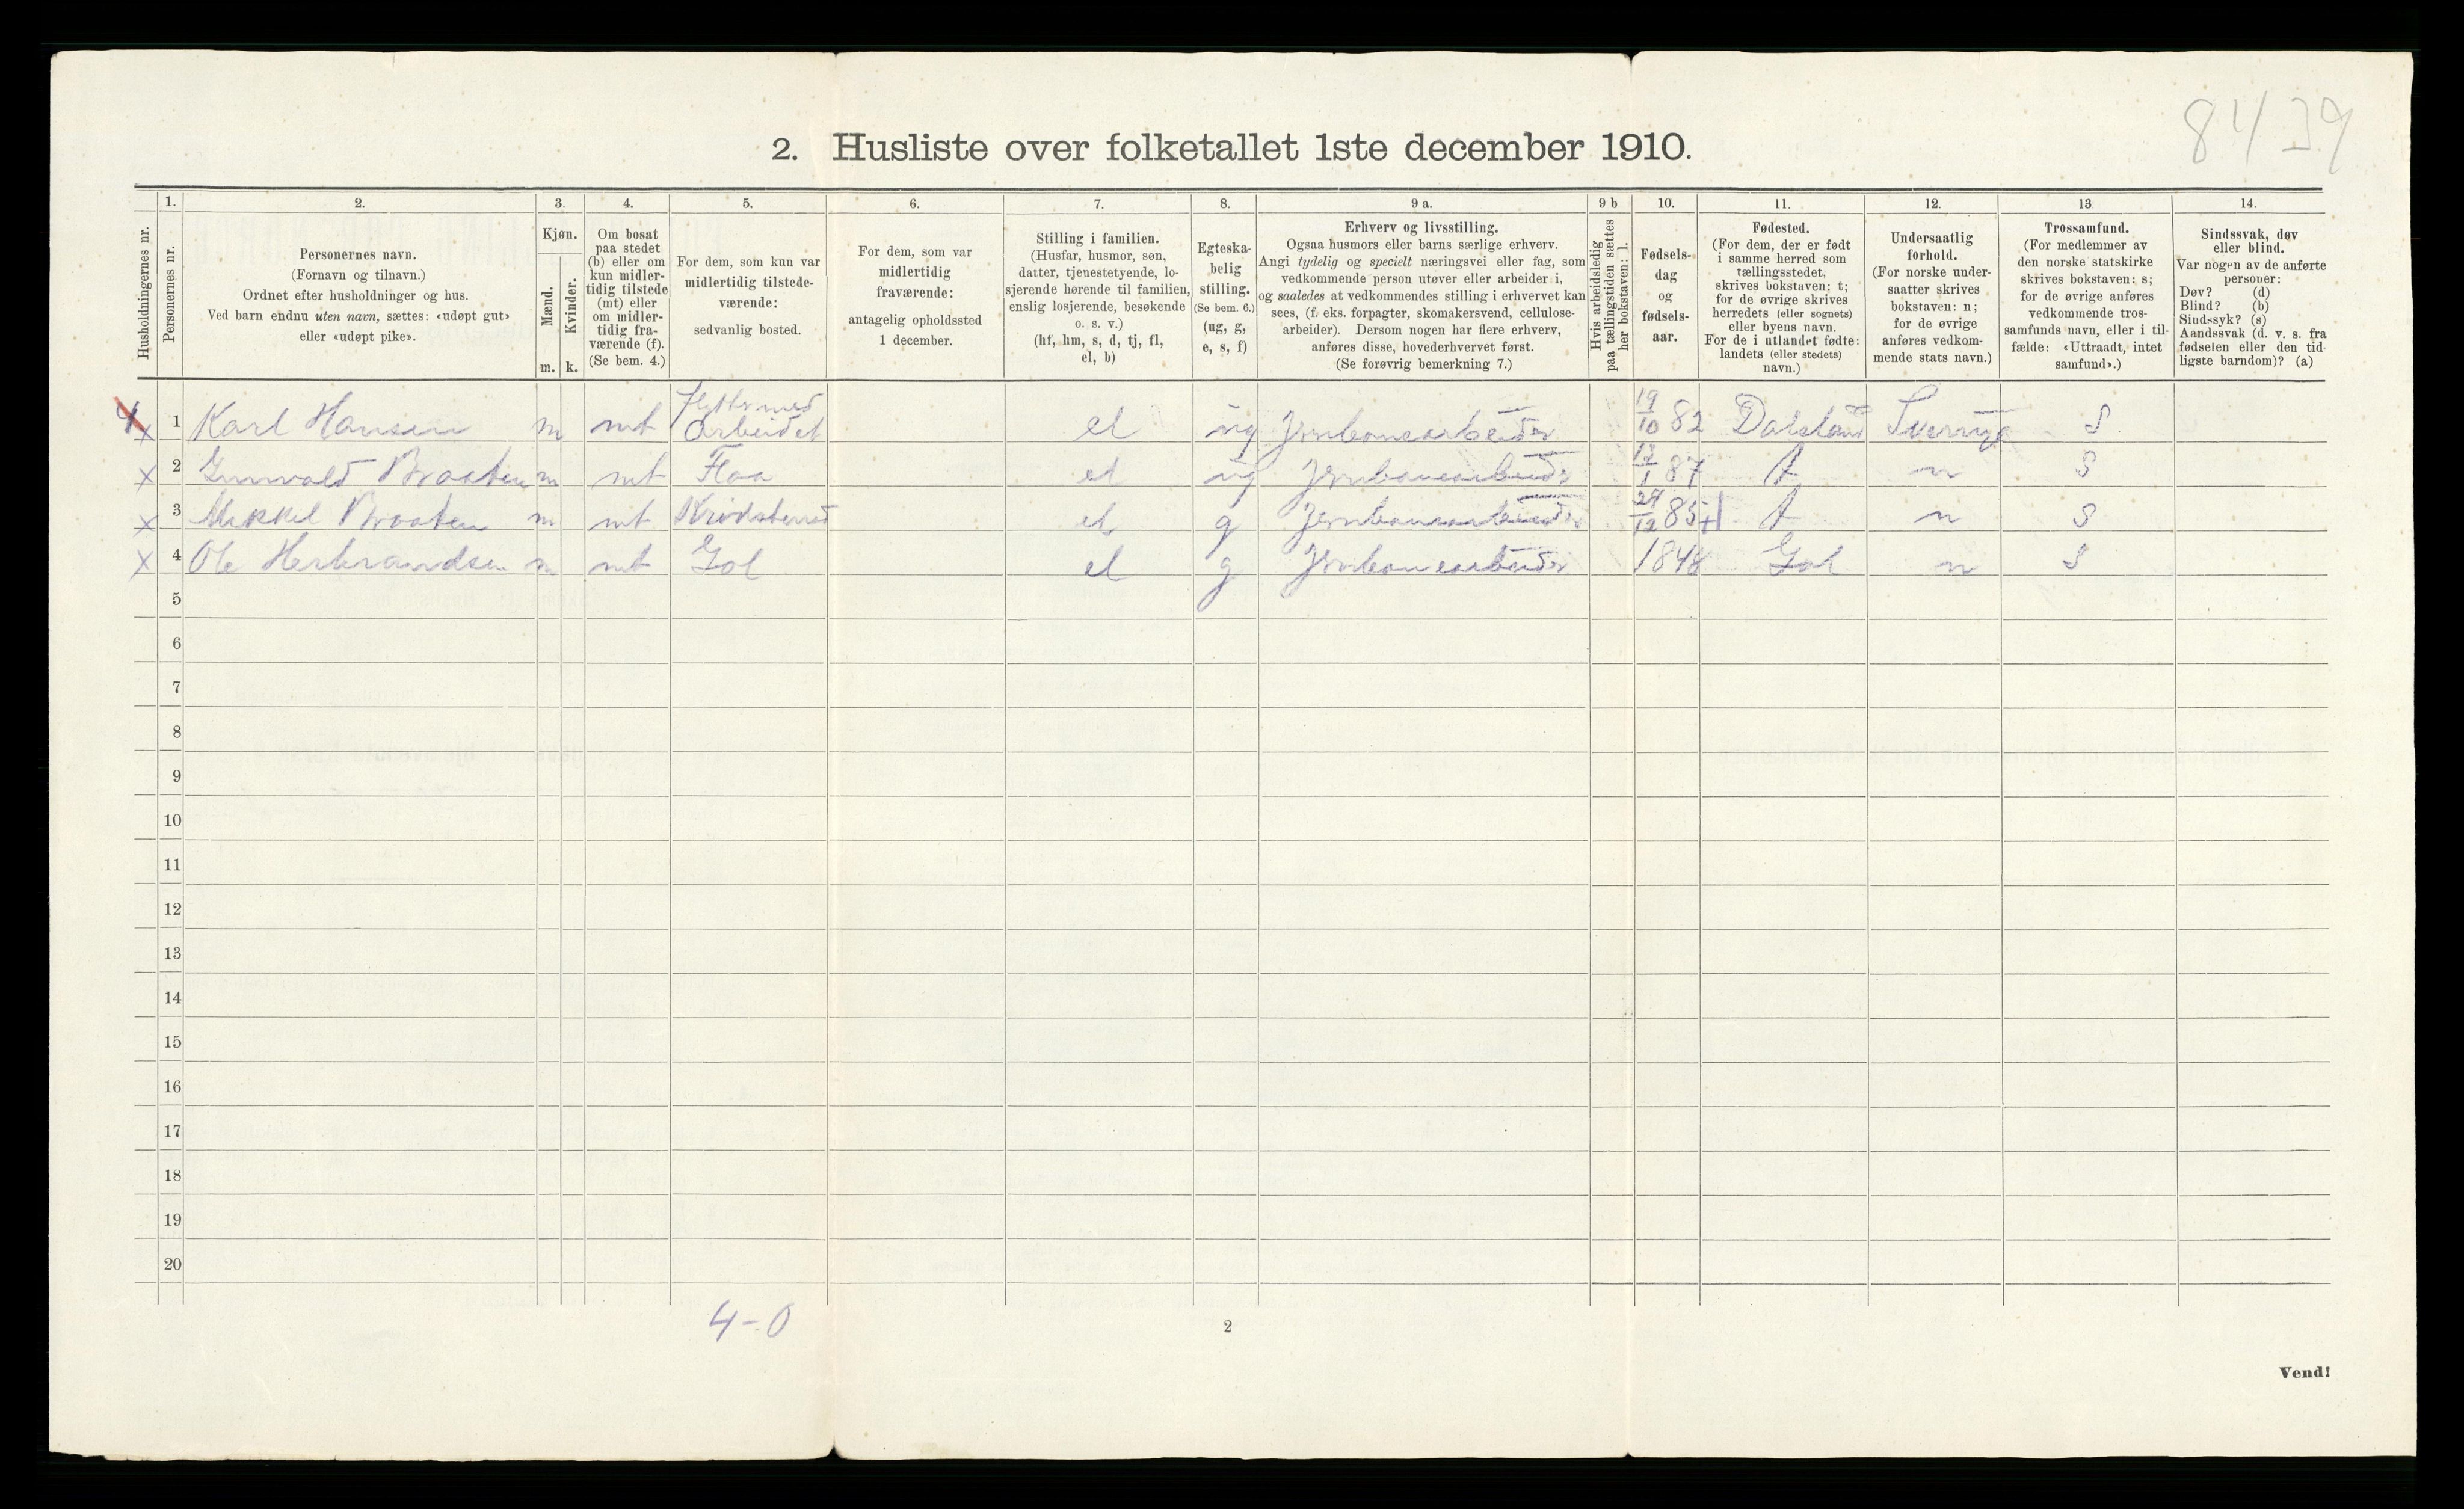 8439
2. Husliste over folketallet 1ste december 1910.
Husholdningernes nr.
1.
Personernes nr.
2.
Personernes navn.
(Fornavn og tilnavn.)
Ordnet efter husholdninger og hus.
Ved barn endnu uten navn, sættes: «udøpt gut»
eller «udøpt pike».
3.
Kjøn.
Mænd.
Kvinder.
m. k.
4.
Om bosat
paa stedet
(b) eller om
kun midler-
tidig tilstede
(mt) eller
om midler-
tidig fra-
værende (f).
(Se bem. 4.)
5.
For dem, som kun var
midlertidig tilstede-
værende:
sedvanlig bosted.
6.
For dem, som var
midlertidig
fraværende:
antagelig opholdssted
1 december.
7.
Stilling i familien.
(Husfar, husmor, søn,
datter, tjenestetyende, lo-
sjerende hørende til familien,
enslig losjerende, besøkende
o. s. v.)
(hf, hm, s, d, tj, fl,
el, b)
8.
Egteska-
belig
stilling.
(Se bem. 6.)
(ug, g,
e, s, f)
9 a.
Erhverv og livsstilling.
Ogsaa husmors eller barns særlige erhverv.
Angi tydelig og specielt næringsvei eller fag, som
vedkommende person utøver eller arbeider i,
og saaledes at vedkommendes stilling i erhvervet kan
sees, (f. eks. forpagter, skomakersvend, cellulose-
arbeider). Dersom nogen har flere erhverv,
anføres disse, hovederhvervet først.
(Se forøvrig bemerkning 7.)
9 b
Hvis arbeidsledig
paa tællingstiden sættes
her bokstaven: l.
10.
Fødsels-
dag
og
fødsels-
aar.
11.
Fødested.
(For dem, der er født
i samme herred som
tællingsstedet,
skrives bokstaven: t;
for de øvrige skrives
herredets (eller sognets)
eller byens navn.
For de i utlandet fødte:
landets (eller stedets)
navn.)
12.
Undersaatlig
forhold.
(For norske under-
saatter skrives
bokstaven: n;
for de øvrige
anføres vedkom-
mende stats navn.)
13.
Trossamfund.
(For medlemmer av
den norske statskirke
skrives bokstaven: s;
for de øvrige anføres
vedkommende tros-
samfunds navn, eller i til-
fælde: «Uttraadt, intet
samfund».)
14.
Sindssvak, døv
eller blind.
Var nogen av de anførte
personer:
Døv? (d)
Blind? (b)
Sindssyk? (s)
Aandssvak (d. v. s. fra
fødselen eller den tid-
ligste barndom)? (a)
x 1 Karl Hansen m mt Flytter med Arbeidet el ug Jernbanearbeider 19/10 82 Dalsland Sverrige S
x 2 Gunvald Braaten m mt Flaa el ug Jernbanearbeider 13/1 87 t n S
x 3 Mikkel Braaten m mt Krødsherred el g Jernbanearbeider 29/12 85 t n S
x 4 Ole Herbrandsen m mt Gol el g Jernbanearbeider 1848 Gol n S
5
6
7
8
9
10
11
12
13
14
15
16
17
18
19
20
4-0
2
Vend!